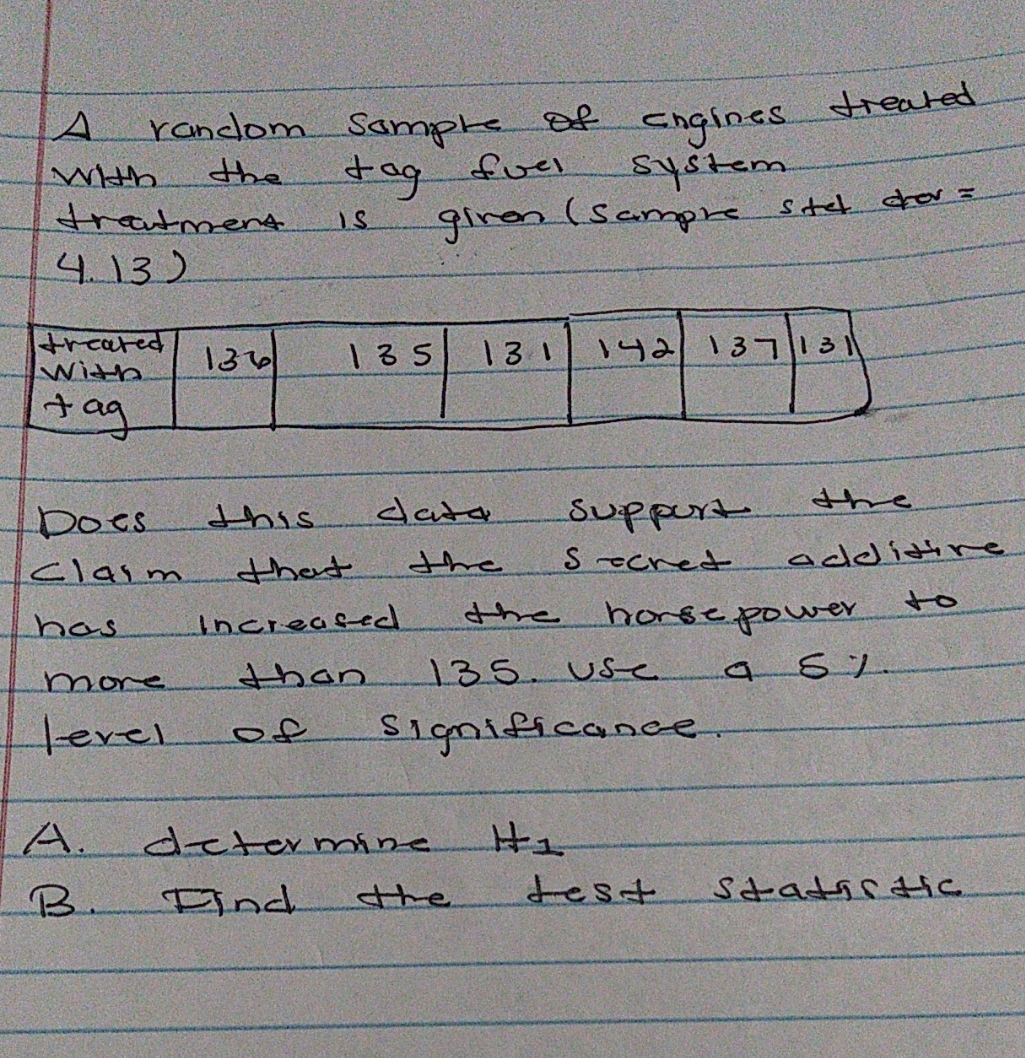 A random sample of engines treated
with the tag fuel system
treatment is given (sample std dev =
4.13)
treated with tag 136 135 131 142 137 131
Does this data support the
claim that the secret additive
has increased the horsepower to
more than 135. use a 5%
level of significance.
A. determine H1
B. Find the test statistic